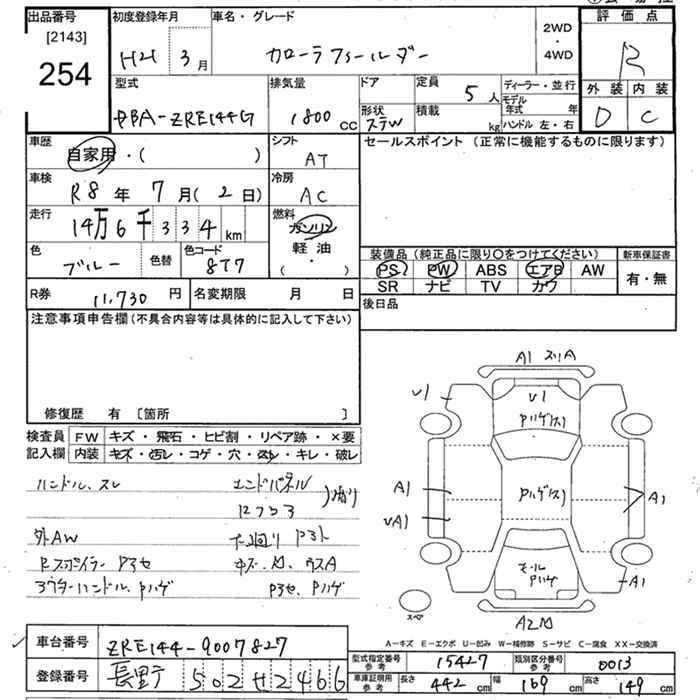 出品番号
[2143]
254
初度登録年月
H21 3月
車名・グレード
カローラフィールダー
2WD
・
4WD
評価点
R
外装 内装
D C
型式
DBA-ZRE144G
排気量
1800 cc
ドア
形状
STW
定員
5人
積載
kg
ディーラー・並行
モデル年式 年
ハンドル 左・右
車歴
自家用・( )
シフト
AT
セールスポイント (正常に機能するものに限ります)
車検
R8年 7月(2日)
冷房
AC
走行
14万6千334km
燃料
ガソリン
軽油
・
( )
色
ブルー
色替
色コード
8T7
装備品(純正品に限り○をつけてください)
新車保証書
PS PW ABS エアB AW
SR ナビ TV カワ
有・無
R券 11,730円
名変期限 月 日
後日品
注意事項申告欄(不具合内容等は具体的に記入して下さい)
修復歴 有 [箇所 ]
検査員記入欄
FW キズ・飛石・ヒビ割・リペア跡・×要
内装 キズ・汚レ・コゲ・穴・スレ・キレ・破レ
ハンドル、スレ
エンドパネル
外AW
アウターハンドル、Pハゲ
A1
U1
U1
Pハゲ
A1
UA1
Pハゲ
A1
モール
Pハゲ
A1
スペア
A2
A-キズ E-エクボ U-凹み W-補修跡 S-サビ C-腐食 XX-交換済
車台番号 ZRE144-9007827
登録番号 長野 502 せ 2466
型式指定番号 参考 15427
類別区分番号 参考 0013
車庫証明用 参考 長さ 442cm 幅 169cm 高さ 149cm